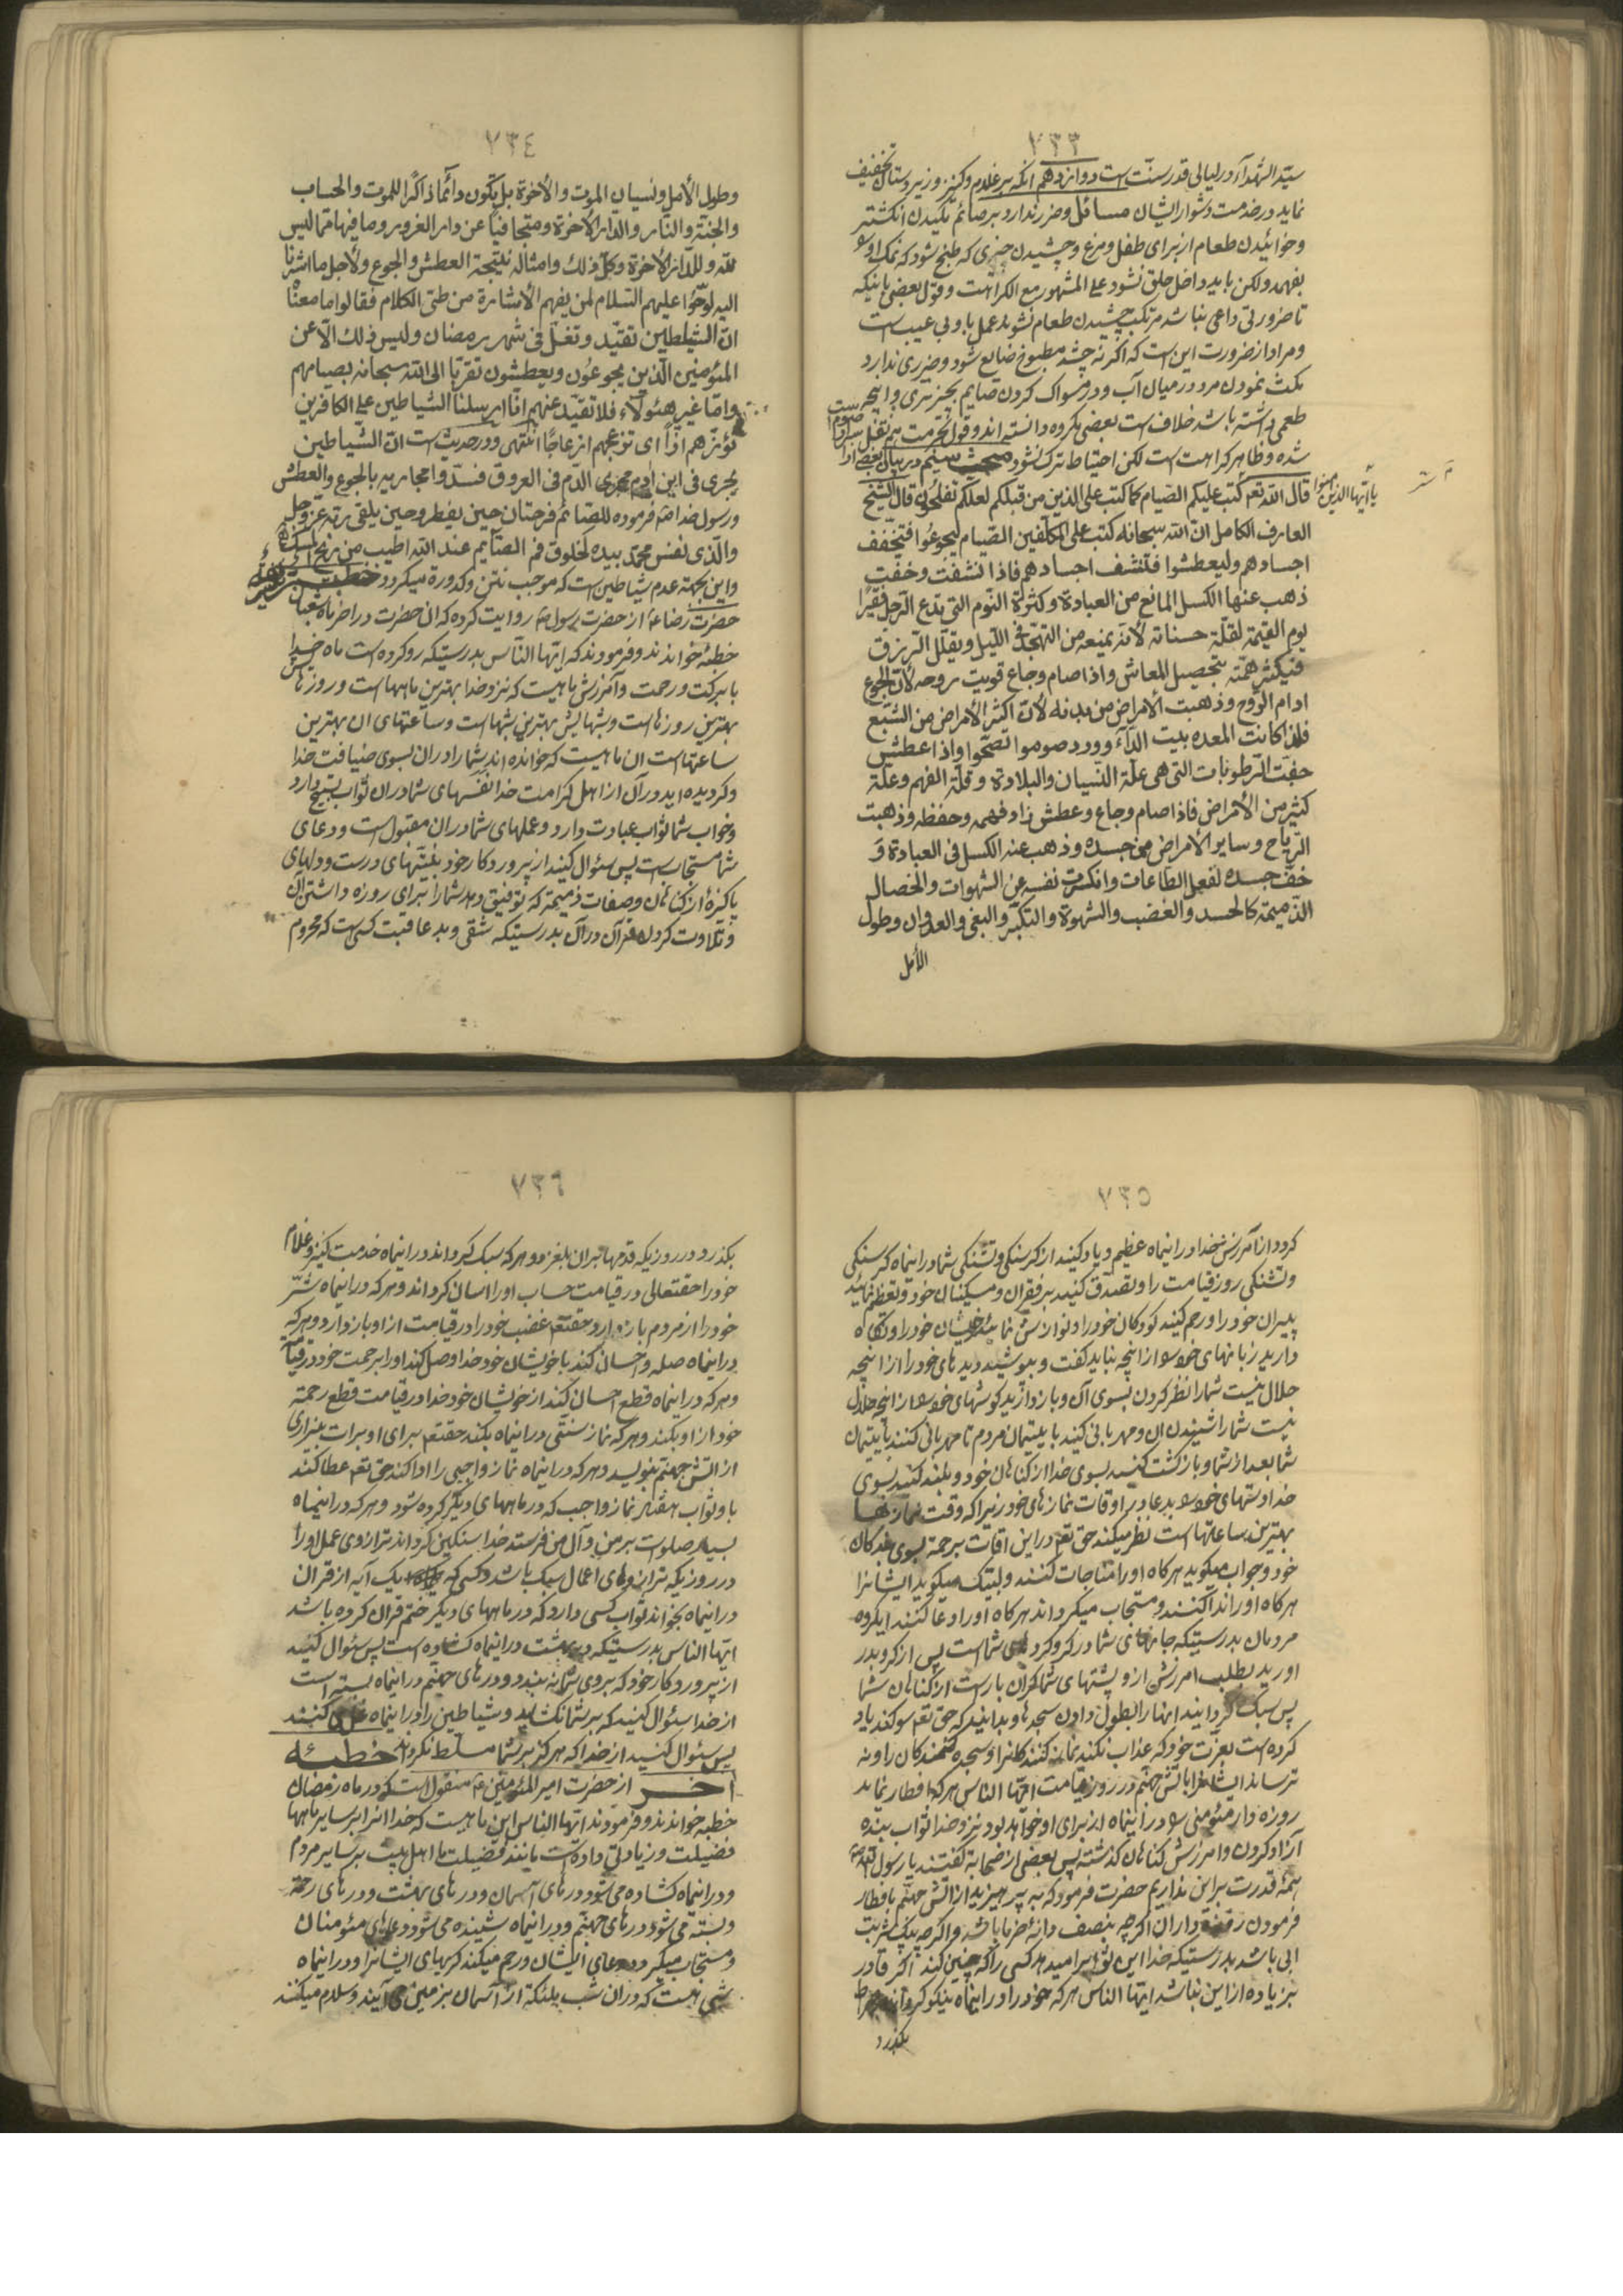 ٧٣٣
سیّد الشهدآء در لیالی قدر سنّت است دوازدهم انکه بر غلام و کنیز و زیر دستان تخفیف
نماید در خدمت و شوار ایشان مسائل و ضرر ندارد بر صائم مکیدن انکشتر
و خوائیدن طعام از برای طفل و مرغ و چشیدن چیزی که طبخ شود که نمک او
بفهمد ولکن باید داخل حلق نشود علی المشهور مع الکراهت و قول بعضی باینکه
تا ضرورتی داعی نباشد مرتکب چشیدن طعام نشوید عمل باو بی عیب است
و مراد از ضرورت این است که اکر نه چشد مطبوخ ضایع شود و ضرری ندارد
مکث نمودن مرد در میان آب و در مسواک کردن صایم بچیز تری و انچه
طعمی داشته باشد خلاف است بعضی مکروه دانسته اند و قول بحرمت هم نقل
شده و ظاهر کراهت است لکن احتیاط ترک نشود مبحث سیّم در بیان بعضی از
یا ایّها الذین امنوا
قال الله تعم کتب علیکم الصّیام کما کتب علی الذین من قبلکم لعلّکم تفلحون قال الشیخ
العارف الکامل انّ الله سبحانه کتب علی المکلّفین الصّیام لیجوعُوا فتخفّف
اجسادهم ولیعطشوا فتنشف اجسادهم فاذا نشفت و خفّت
ذهب عنها الکسل المانع من العبادة و کثرة النّوم التی تدع الرّجل فقیرًا
یوم القیمة لقلّة حسناته لأنّه یمنعه من التهجّد فی اللّیل و یقلّل الرّزق
فیکثر همّته بتحصیل المعاش و اذا صام و جاع قویت روحه لأنّ الجوع
ادام الرّوح و ذهبت الأمراض من بدنه لأنّ اکثر الأمراض من الشّبع
فلذا کانت المعده بیت الدّآء و ورد صوموا تصحّوا و اذا عطش
جفّت الرّطوبات التی هی علّة النّسیان والبلادة و قلّة الفهم و علّة
کثیر من الأمراض فاذا صام و جاع و عطش زاد فهمه و حفظه و ذهبت
الرّیاح و سایر الأمراض من جسده و ذهب عنه الکسل فی العبادة و
خفّ جسده لفعل الطّاعات و انکسرت نفسه عن الشهوات والخصال
الذّمیمة کالحسد والغضب والشهوة والتکبّر والبغی والعدوان و طول
الأمل
٧٣٤
وطول الأمل و نسیان الموت والأخرة بل یکون دائمًا ذاکرًا للموت والحساب
والجنّة والنّار والدّار الأخرة و متجافیًا عن دار الغرور و ما فیها ممّا لیس
للّه و للدّار الأخرة و کلّ ذلك و امثاله نتیجة العطش والجوع و لأجل ما اشرنا
الیه لوّحُوا علیهم السّلام لمن یفهم الأشارة من طیّ الکلام فقالوا ما معنٰا
انّ الشیاطین تقیّد و تغلّ فی شهر رمضان و لیس ذلك الّا عن
المئومنین الّذین یجوعُون و یعطشون تقربًا الی الله سبحانه بصیامهم
وامّا غیر هئولآء فلا تقیّد عنهم انّا ارسلنا الشیاطین علی الکافرین
تؤزّهم ازًّا ای تزعجهم ازعاجًا انتهی و در حدیث است انّ الشّیاطین
یجری فی ابن ادم مجری الدّم فی العروق فسدّوا مجاریه بالجوع والعطش
و رسول خدا ص فرموده للصّائم فرحتان حین یفطر و حین یلقی ربّه عزّ وجل
والّذی نفس محمّد بیده لخلوق فم الصّایم عند الله اطیب من ریح المسک
و این بجهة عدم شیاطین است که موجب نتن و کدورة میکردد خطبة شریفة
حضرت رضا ع از حضرت رسول ص روایت کرده که ان حضرت در اخر ماه شعبان
خطبهٔ خواندند و فرمودند که ایّها النّاس بدرستیکه رو کرده است ماه خدا
با برکت و رحمت و آمرزش ماهیست که نزد خدا بهترین ماهها است و روزهایش
بهترین روزهاست و شبهایش بهترین شبها است و ساعتهای ان بهترین
ساعتها است ان ماهیست که خوانده اند شما را در ان بسوی ضیافت خدا
و کردیده اید در آن از اهل کرامت خدا نفسهای شما در ان ثواب تسبیح دارد
و خواب شما ثواب عبادت دارد و عملهای شما در ان مقبول است و دعای
شما مستجاب است پس سئوال کنید از پروردکار خود بنیّتهای درست و دلهای
پاکیزهٔ از کناهان و صفات ذمیمة که توفیق دهد شما را برای روزه داشتن ان
و تلاوت کردن قرآن در آن بدرستیکه شقی و بد عاقبت کسی است که محروم
٧٣٥
کردد از آمرزش خدا در اینماه عظیم و یاد کنید از کرسنکی و تشنکی شما در اینماه کرسنکی
و تشنکی روز قیامت را و تصدّق کنید بر فقیران و مسکینان خود و تعظیم نمائید
پیران خود را و رحم کنید کودکان خود را و نوازش نمائید خویشان خود را و نکاه
دارید زبانهای خود را از انچه نباید کفت و بپوشید دیدهای خود را از انچه
حلال نیست شما را نظر کردن بسوی آن و باز دارید کوشهای خود را از انچه حلال
نیست شما را شنیدن ان و مهربانی کنید با یتیمان مردم تا مهربانی کنند با یتیمان
شما بعد از شما و باز کشت کنید بسوی خدا از کناهان خود و بلند کنید بسوی
خدا دستهای خود را بدعا در اوقات نمازهای خود زیرا که وقت نمازها
بهترین ساعتها است نظر میکند حق تعم در این اوقات برحمة بسوی بندکان
خود و جواب میکوید هرکاه او را مناجات کنند و لبّیک میکوید ایشانرا
هرکاه او را ندا کنند و مستجاب میکرداند هرکاه او را دعا کنند ایکروه
مردمان بدرستیکه جانهای شما در کرو کردهای شما است پس از کرو بدر
اورید بطلب امرزش از و پشتهای شما کران بار است از کناهان شما
پس سبک کردانید انها را بطول دادن سجدها و بدانید که حق تعم سوکند یاد
کرده است بعزت خود که عذاب نکند نماز کنندکان را و سجده کنندکان را و نه
ترساند ایشانرا باتش جهنّم در روز قیامت ایّها النّاس هرکه افطار نماید
روزه دار مئومنی را در اینماه از برای او خواهد بود نزد خدا ثواب بنده
آزاد کردن و امرزش کناهان کذشته پس بعضی از صحابة کفتند یا رسول الله
همهٔ قدرت بر این نداریم حضرت فرمود که به پرهیزید از اتش جهنّم بافطار
فرمودن روزه داران اکرچه بنصف دانهٔ خرما باشد و اکرچه بیک شربت
ابی باشد بدرستیکه خدا این ثواب را میدهد کسی را که چنین کند اکر قادر
بر زیاده از این نباشد ایّها النّاس هرکه خود را در اینماه نیکو کرداند بر صراط
بکذرد
٧٣٦
بکذرد در روزیکه قدمها بران بلغزد و هرکه سبک کرداند در اینماه خدمت کنیز و غلام
خود را حقتعالی در قیامت حساب او را اسان کرداند و هرکه در اینماه شرّ
خود را از مردم باز دارد حقتعم غضب خود را در قیامت از او باز دارد و هرکه
در اینماه صله و احسان کند با خویشان خود خدا وصل کند او را برحمت خود در قیامت
و هرکه در اینماه قطع احسان کند از خویشان خود خدا در قیامت قطع رحمة
خود از او بکند و هرکه نماز سنّتی در اینماه بکند حقتعم برای او برات بیزاری
از اتش جهنّم بنویسد و هرکه در اینماه نماز واجبی را ادا کند حق تعم عطا کند
باو ثواب هفتاد نماز واجب که در ماههای دیکر کرده شود و هرکه در اینماه
بسیار صلوات بر من و آل من فرستد خدا سنکین کرداند ترازوی عمل او را
در روزیکه ترازوهای اعمال سبک باشد و کسی که یک آیه از قران
در اینماه بخواند ثواب کسی دارد که در ماههای دیکر ختم قران کرده باشد
ایّها النّاس بدرستیکه در بهشت در اینماه کشاده است پس سئوال کنید
از پروردکار خود که بروی شما نه بندد و درهای جهنّم در اینماه بسته است
از خدا سئوال کنید که بر شما نکشاید و شیاطین را در اینماه غل کنند
پس سئوال کنید از خدا که هرکز بر شما مسلّط نکرداند خطبهٔ
اخر از حضرت امیر المئومنین ع منقول است که در ماه رمضان
خطبه خواندند و فرمودند ایّها النّاس این ماهیست که خدا انرا بر سایر ماهها
فضیلت و زیادتی داده است مانند فضیلت ما اهل بیت بر سایر مردم
و در اینماه کشاده می شود درهای آسمان و درهای بهشت و درهای رحمة
و بسته می شود درهای جهنّم و در اینماه شنیده می شود دعاهای مئومنان
و مستجاب میکردد دعای ایشان و رحم میکند کریهای ایشانرا و در اینماه
شبی هست که در ان شب ملئکة از آسمان بزمین می آیند و سلام میکنند